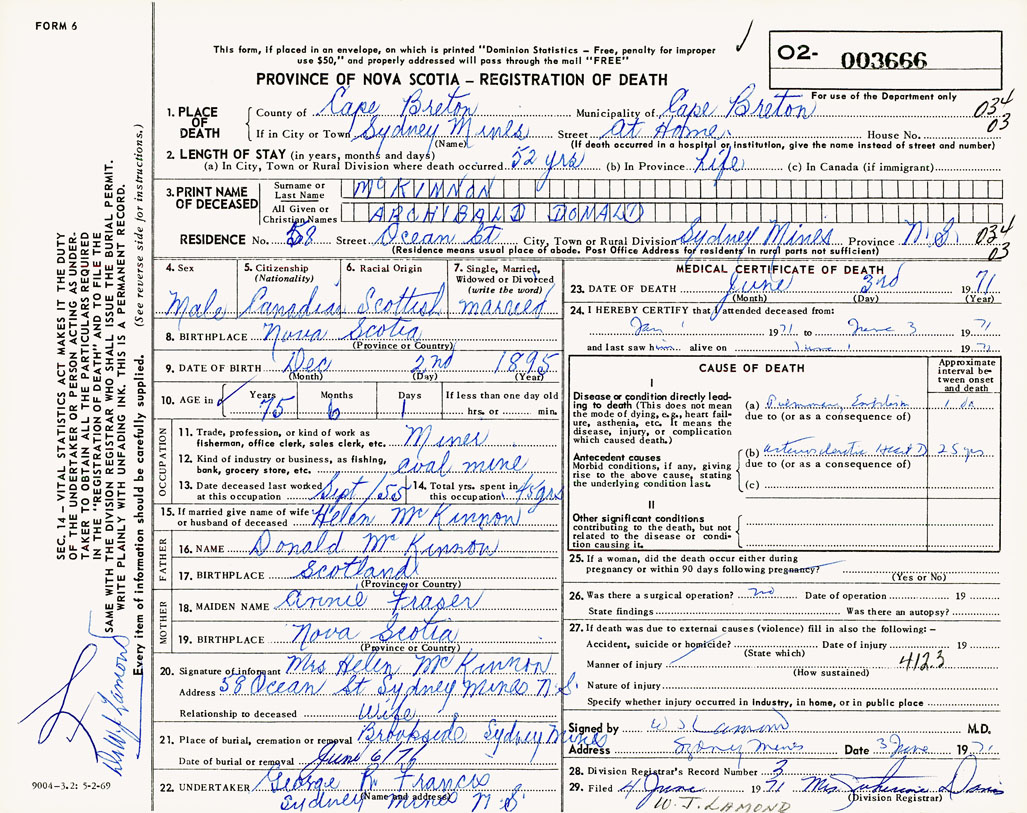 FORM 6
This form, if placed in an envelope, on which is printed "Dominion Statistics – Free, penalty for improper
use $50," and properly addressed will pass through the mail "FREE"
O2- 003666
PROVINCE OF NOVA SCOTIA – REGISTRATION OF DEATH
For use of the Department only
034
03
1. PLACE OF DEATH
County of Cape Breton Municipality of Cape Breton
If in City or Town Sydney Mines Street At Home House No.
(Name) (If death occurred in a hospital or institution, give the name instead of street and number)
2. LENGTH OF STAY (in years, months and days)
(a) In City, Town or Rural Division where death occurred 52 yrs (b) In Province Life (c) In Canada (if immigrant)
3. PRINT NAME OF DECEASED
Surname or Last Name McKINNON
All Given or Christian Names ARCHIBALD DONALD
RESIDENCE No. 58 Street Ocean St City, Town or Rural Division Sydney Mines Province N.S. 034
(Residence means usual place of abode. Post Office Address for residents in rural parts not sufficient) 03
4. Sex
Male
5. Citizenship (Nationality)
Canadian
6. Racial Origin
Scottish
7. Single, Married, Widowed or Divorced (write the word)
married
8. BIRTHPLACE Nova Scotia
(Province or Country)
9. DATE OF BIRTH Dec 2nd 1895
(Month) (Day) (Year)
10. AGE in Years Months Days If less than one day old
75 6 1 hrs. or min.
OCCUPATION
11. Trade, profession, or kind of work as
fisherman, office clerk, sales clerk, etc. Miner
12. Kind of industry or business, as fishing,
bank, grocery store, etc. coal mine
13. Date deceased last worked at this occupation Sept/55
14. Total yrs. spent in this occupation 45 yrs
15. If married give name of wife
or husband of deceased Helen McKinnon
FATHER
16. NAME Donald McKinnon
17. BIRTHPLACE Scotland
(Province or Country)
MOTHER
18. MAIDEN NAME Annie Fraser
19. BIRTHPLACE Nova Scotia
(Province or Country)
20. Signature of informant Mrs Helen McKinnon
Address 58 Ocean St Sydney Mines N.S.
Relationship to deceased Wife
21. Place of burial, cremation or removal Brookside Sydney Mines
Date of burial or removal June 6/71
22. UNDERTAKER George R. Francis
Sydney Mines N S
(Name and address)
MEDICAL CERTIFICATE OF DEATH
23. DATE OF DEATH June 3rd 1971
(Month) (Day) (Year)
24. I HEREBY CERTIFY that I attended deceased from:
Jan 1 1971 to June 3 1971
and last saw him alive on June 1 1971
CAUSE OF DEATH
Approximate interval between onset and death
I
Disease or condition directly leading
to death (This does not mean
the mode of dying, e.g., heart failure,
asthenia, etc. It means the
disease, injury, or complication
which caused death.)
(a) Pulmonary Embolism 1 da
due to (or as a consequence of)
Antecedent causes
Morbid conditions, if any, giving
rise to the above cause, stating
the underlying condition last.
(b) Arteriosclerotic Heart D 25 yrs
due to (or as a consequence of)
(c)
II
Other significant conditions
contributing to the death, but not
related to the disease or condition
causing it.
25. If a woman, did the death occur either during
pregnancy or within 90 days following pregnancy?
(Yes or No)
26. Was there a surgical operation? no Date of operation 19
State findings Was there an autopsy?
27. If death was due to external causes (violence) fill in also the following: –
Accident, suicide or homicide? Date of injury 19
(State which)
Manner of injury 412.3
(How sustained)
Nature of injury
Specify whether injury occurred in industry, in home, or in public place
Signed by W J Lamond M.D.
Address Sydney Mines Date 3 June 1971
28. Division Registrar's Record Number 3
29. Filed 4 June 1971 Mrs. Davis
(Division Registrar)
W. J. LAMOND
SEC. 14 – VITAL STATISTICS ACT MAKES IT THE DUTY
OF THE UNDERTAKER OR PERSON ACTING AS UNDER-
TAKER TO OBTAIN ALL THE PARTICULARS REQUIRED
IN THE "REGISTRATION OF DEATH" AND TO FILE THE
SAME WITH THE DIVISION REGISTRAR WHO SHALL ISSUE THE BURIAL PERMIT.
WRITE PLAINLY WITH UNFADING INK. THIS IS A PERMANENT RECORD.
Every item of information should be carefully supplied. (See reverse side for instructions.)
Dr W J Lamond
9004–3.2: 5-2-69